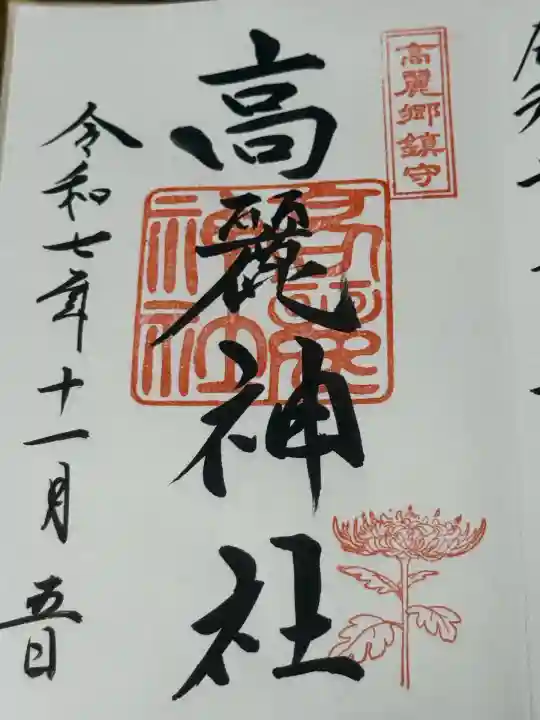 高麗郷鎮守
高麗神社
令和七年十一月五日